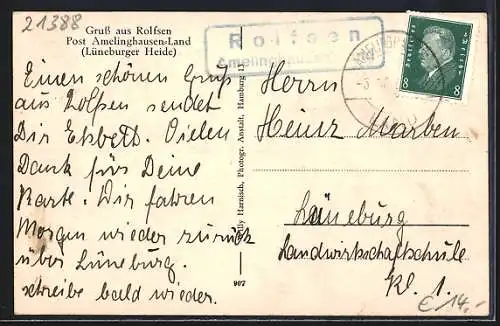 21388
Gruß aus Rolfsen
Post Amelinghausen-Land
(Lüneburger Heide)
Rolfsen
Amelinghausen
8 8
Einen schönen Gruß
aus Rolfsen sendet
Dir Vielen
Dank für Deine
Karte. Wir fahren
Morgen wieder zurück
über Lüneburg.
schreibe bald wieder.
Willy Harnisch, Photogr. Anstalt, Hamburg 13
907
Herrn
Heinz Marben
Lüneburg
Landwirtschaftschule
Kl. 1.
€ 14,-